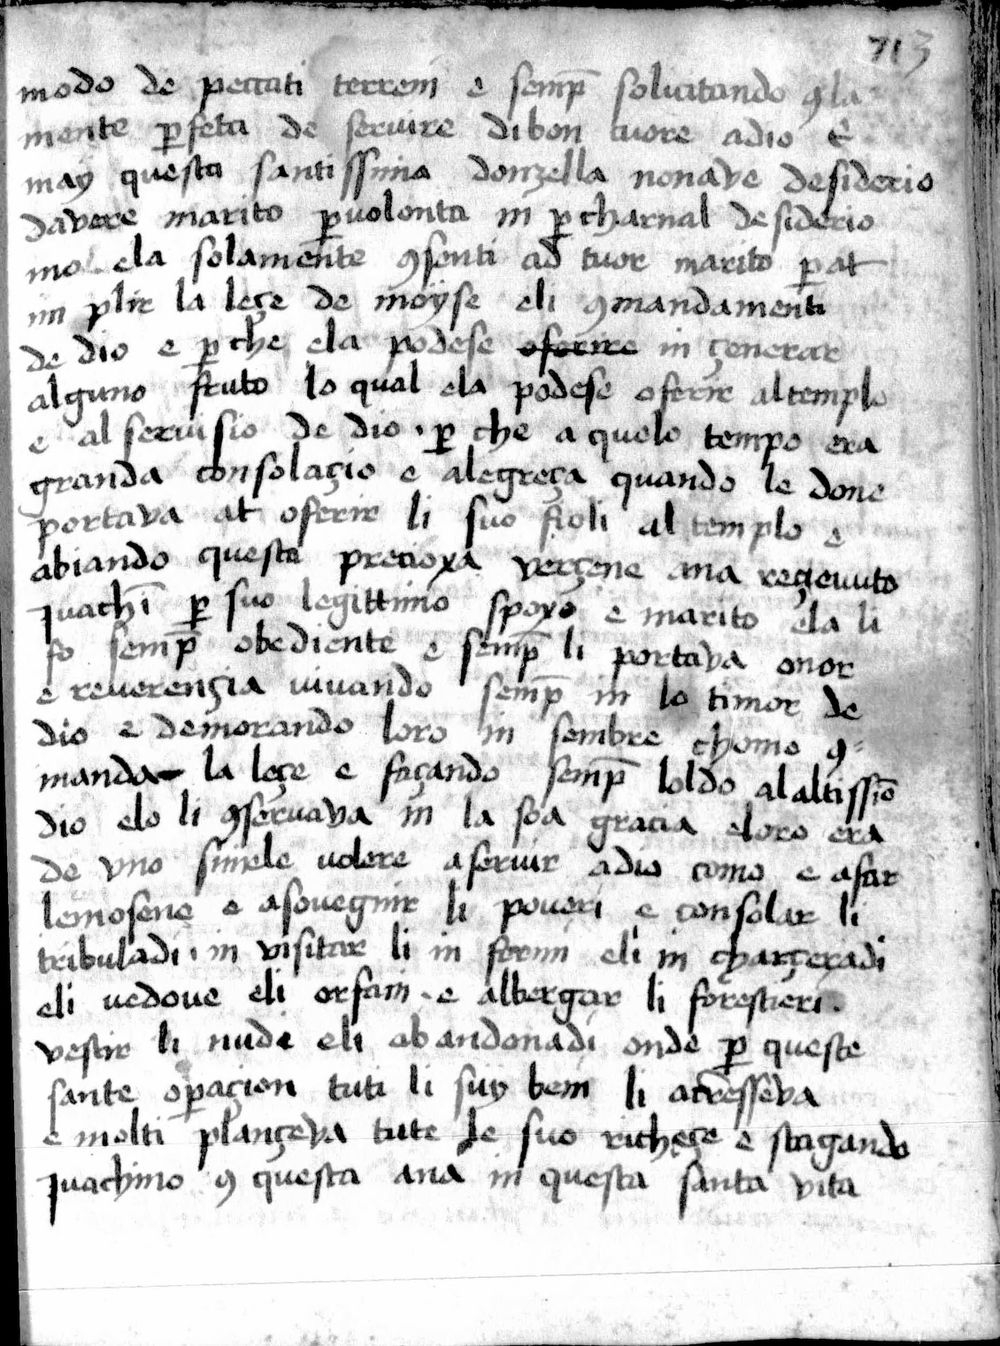 713
modo de peccati terreni e semp̄ solicitando ꝯ la
mente ꝑfeta de servire di bon cuore a dio E
may questa santissima donzella non ave desiderio
davere marito ꝑ volonta ni ꝑ charnal desiderio
mo ela solamente ꝯsenti ad tuor marito ꝑ at
im plir la leçe de moÿse e li ꝯmandamenti
de dio e ꝑ che ela podese oferire in çenerar
alguno fruto lo qual ela podese oferir al templo
e al servisio de dio · ꝑ che a quelo tempo era
granda consolaçio e alegreça quando le done
portava at oferir li suo fioli al templo e
abiando questa precioxa verçene ana reçevuto
Juachī ꝑ suo legittimo spoxo e marito ela li
fo semp̄ obediente e semp̄ li portava onor
e reverençia vivando semp̄ in lo timor de
dio e demorando loro in sembre chomo ꝯ=
manda la leçe e façando semp̄ loldo al altissīo
dio elo li ꝯservava in la soa gracia e loro era
de uno simele volere a servir a dio como e a far
lemosene e a sovegnir li poveri e consolar li
tribuladi · in visitar li in fermi e li in charçeradi
e li vedove e li orfani · e albergar li forestieri ·
vestir li nudi e li abandonadi onde ꝑ queste
sante oꝑaçion tuti li suy beni li acresseva
e molti plançeva tute le suo richeçe e stagando
Juachino ꝯ questa ana in questa santa vita